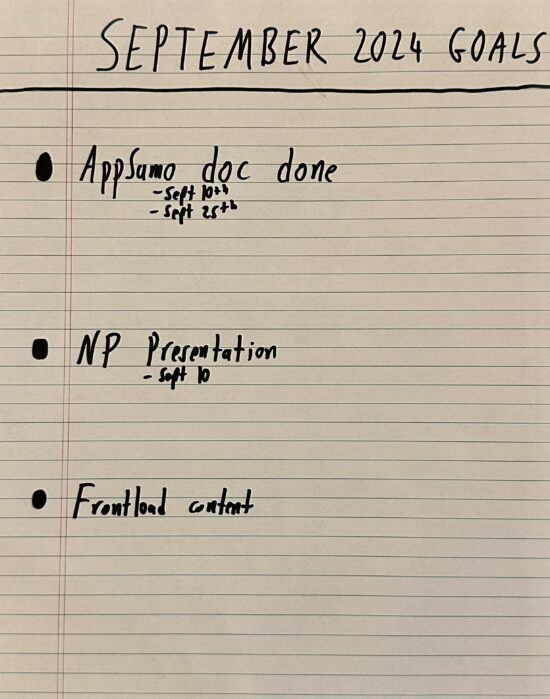 SEPTEMBER 2024 GOALS
AppSumo doc done
- Sept 10th
- Sept 25th
NP Presentation
- Sept 10
Frontload content